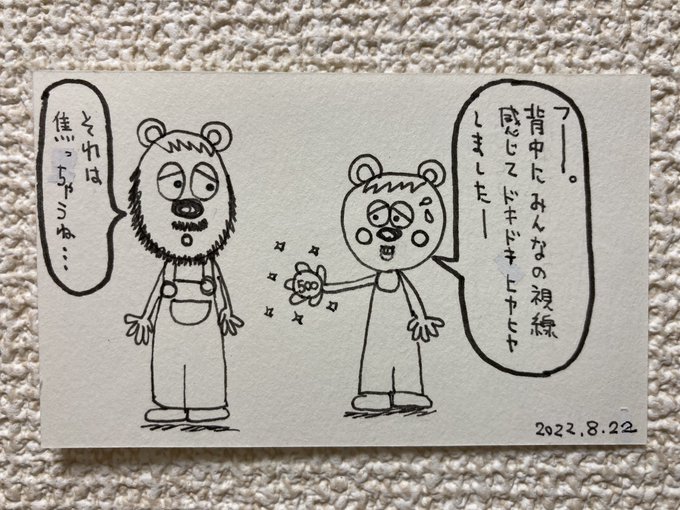 フー。
背中にみんなの視線
感じてドキドキヒヤヒヤ
しましたー
500
それは
焦っちゃうね…
2022.8.22